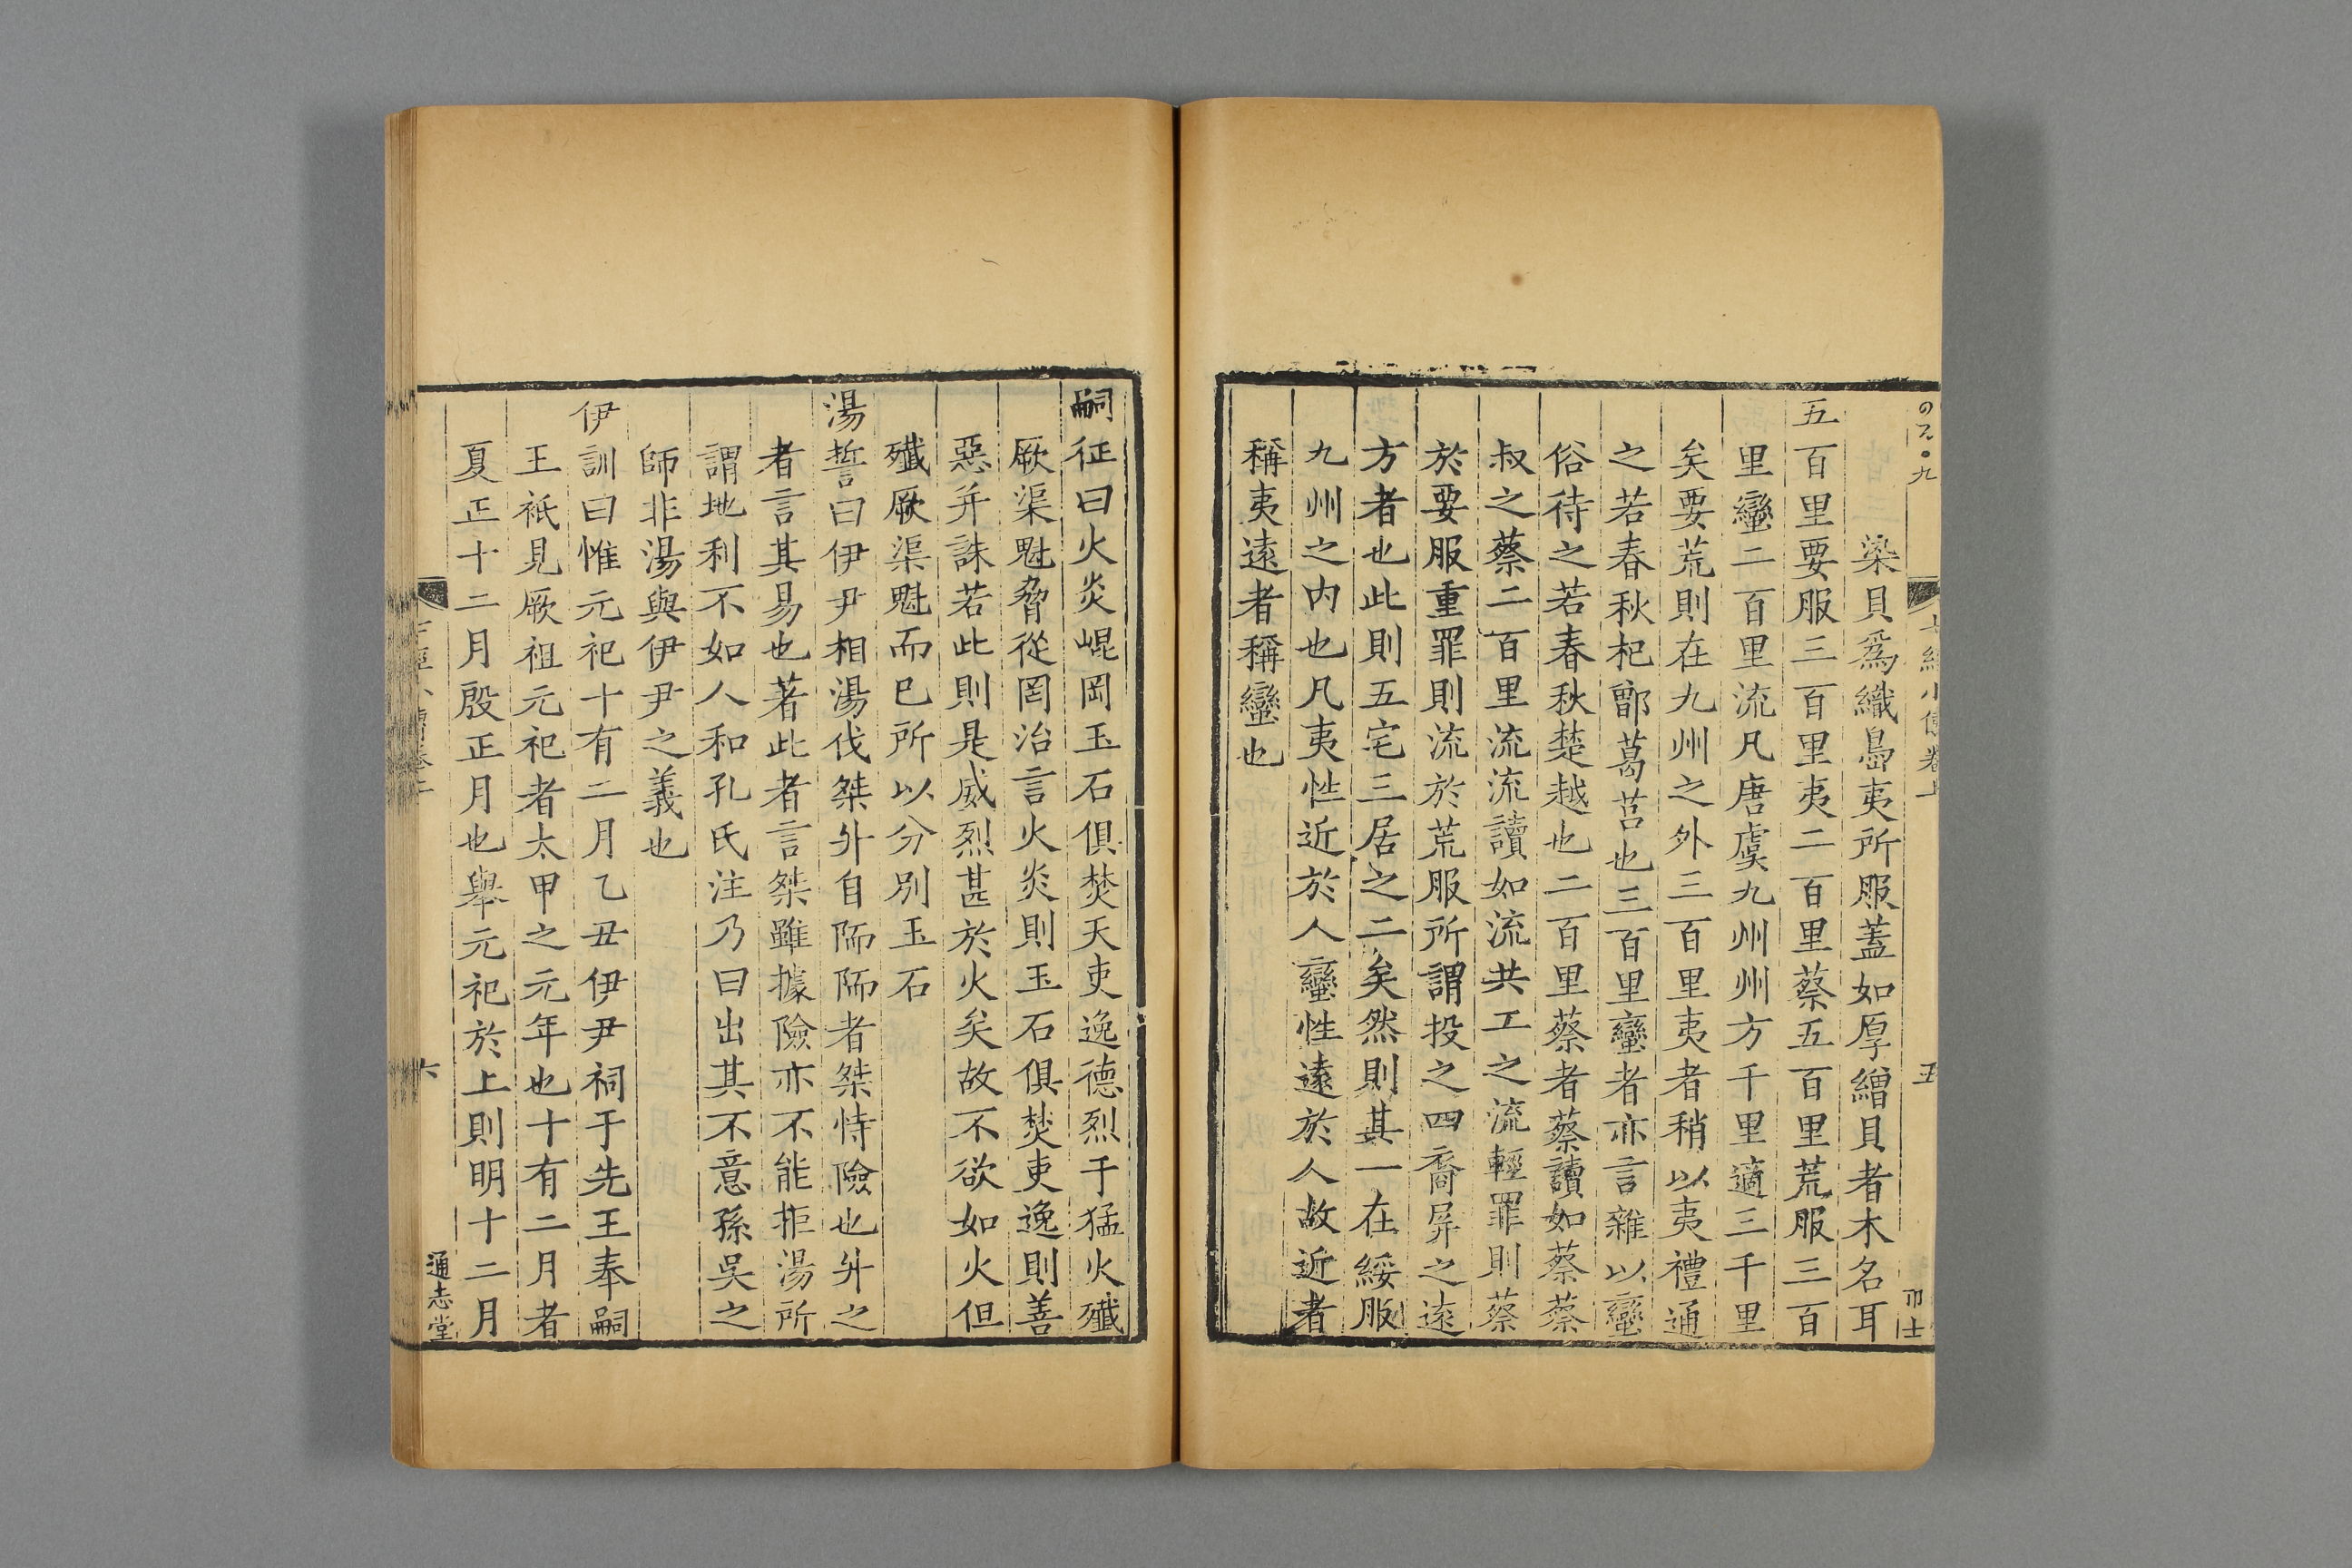 染貝爲織島夷所服蓋如厚繒貝者木名耳
五百里要服三百里夷二百里蔡五百里荒服三百
里蠻二百里流凡唐虞九州州方千里適三千里
矣要荒則在九州之外三百里夷者稍以夷禮通
之若春秋杞鄫葛莒也三百里蠻者亦言雜以蠻
俗待之若春秋楚越也二百里蔡者蔡讀如蔡蔡
叔之蔡二百里流流讀如流共工之流輕罪則蔡
於要服重罪則流於荒服所謂投之四裔屏之遠
方者也此則五宅三居之二矣然則其一在綏服
九州之内也凡夷性近於人蠻性遠於人故近者
稱夷遠者稱蠻也
嗣征曰火炎崐岡玉石俱焚天吏逸德烈于猛火殲
厥渠魁脅從罔治言火炎則玉石俱焚吏逸則善
惡并誅若此則是威烈甚於火矣故不欲如火但
殲厥渠魁而巳所以分别玉石
湯誓曰伊尹相湯伐桀升自陑陑者桀恃險也升之
者言其易也著此者言桀雖據險亦不能拒湯所
謂地利不如人和孔氏注乃曰出其不意孫吳之
師非湯與伊尹之義也
伊訓曰惟元祀十有二月乙丑伊尹祠于先王奉嗣
王祗見厥祖元祀者太甲之元年也十有二月者
夏正十二月殷正月也舉元祀於上則明十二月
六
通志堂